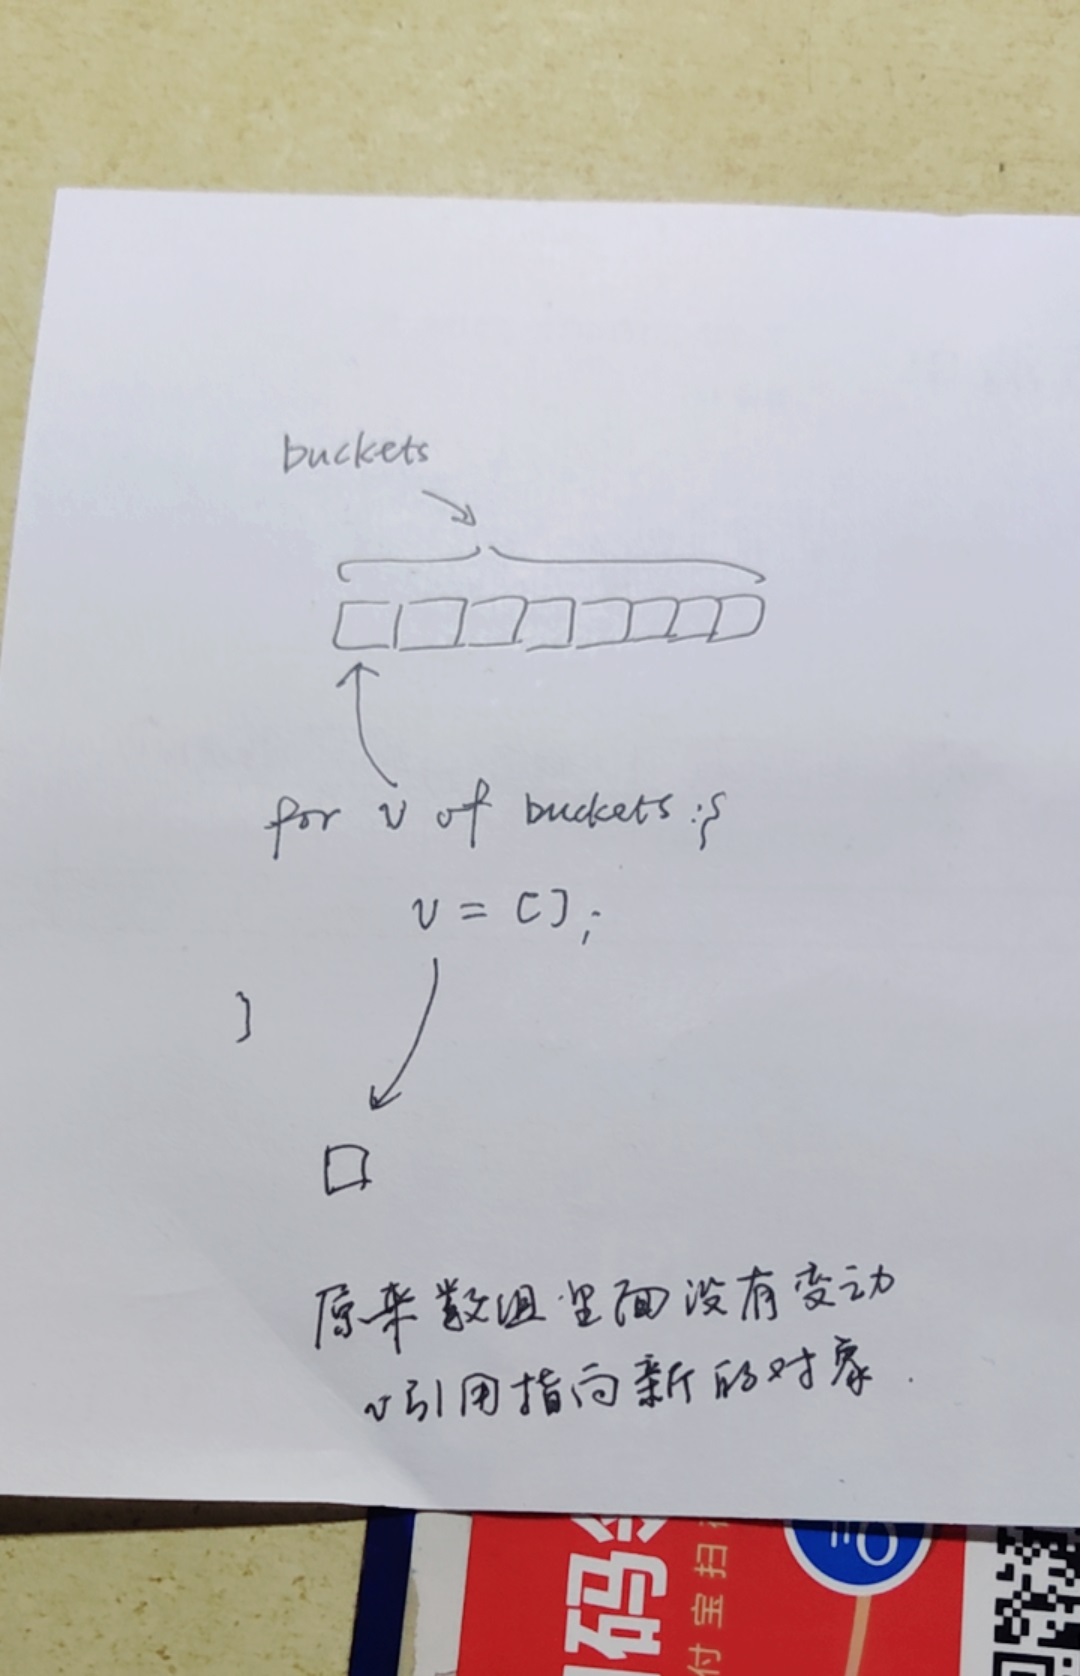 buckets
for v of buckets :{
v = [];
}
原来数组里面没有变动
v引用指向新的对象.
码
付宝扫